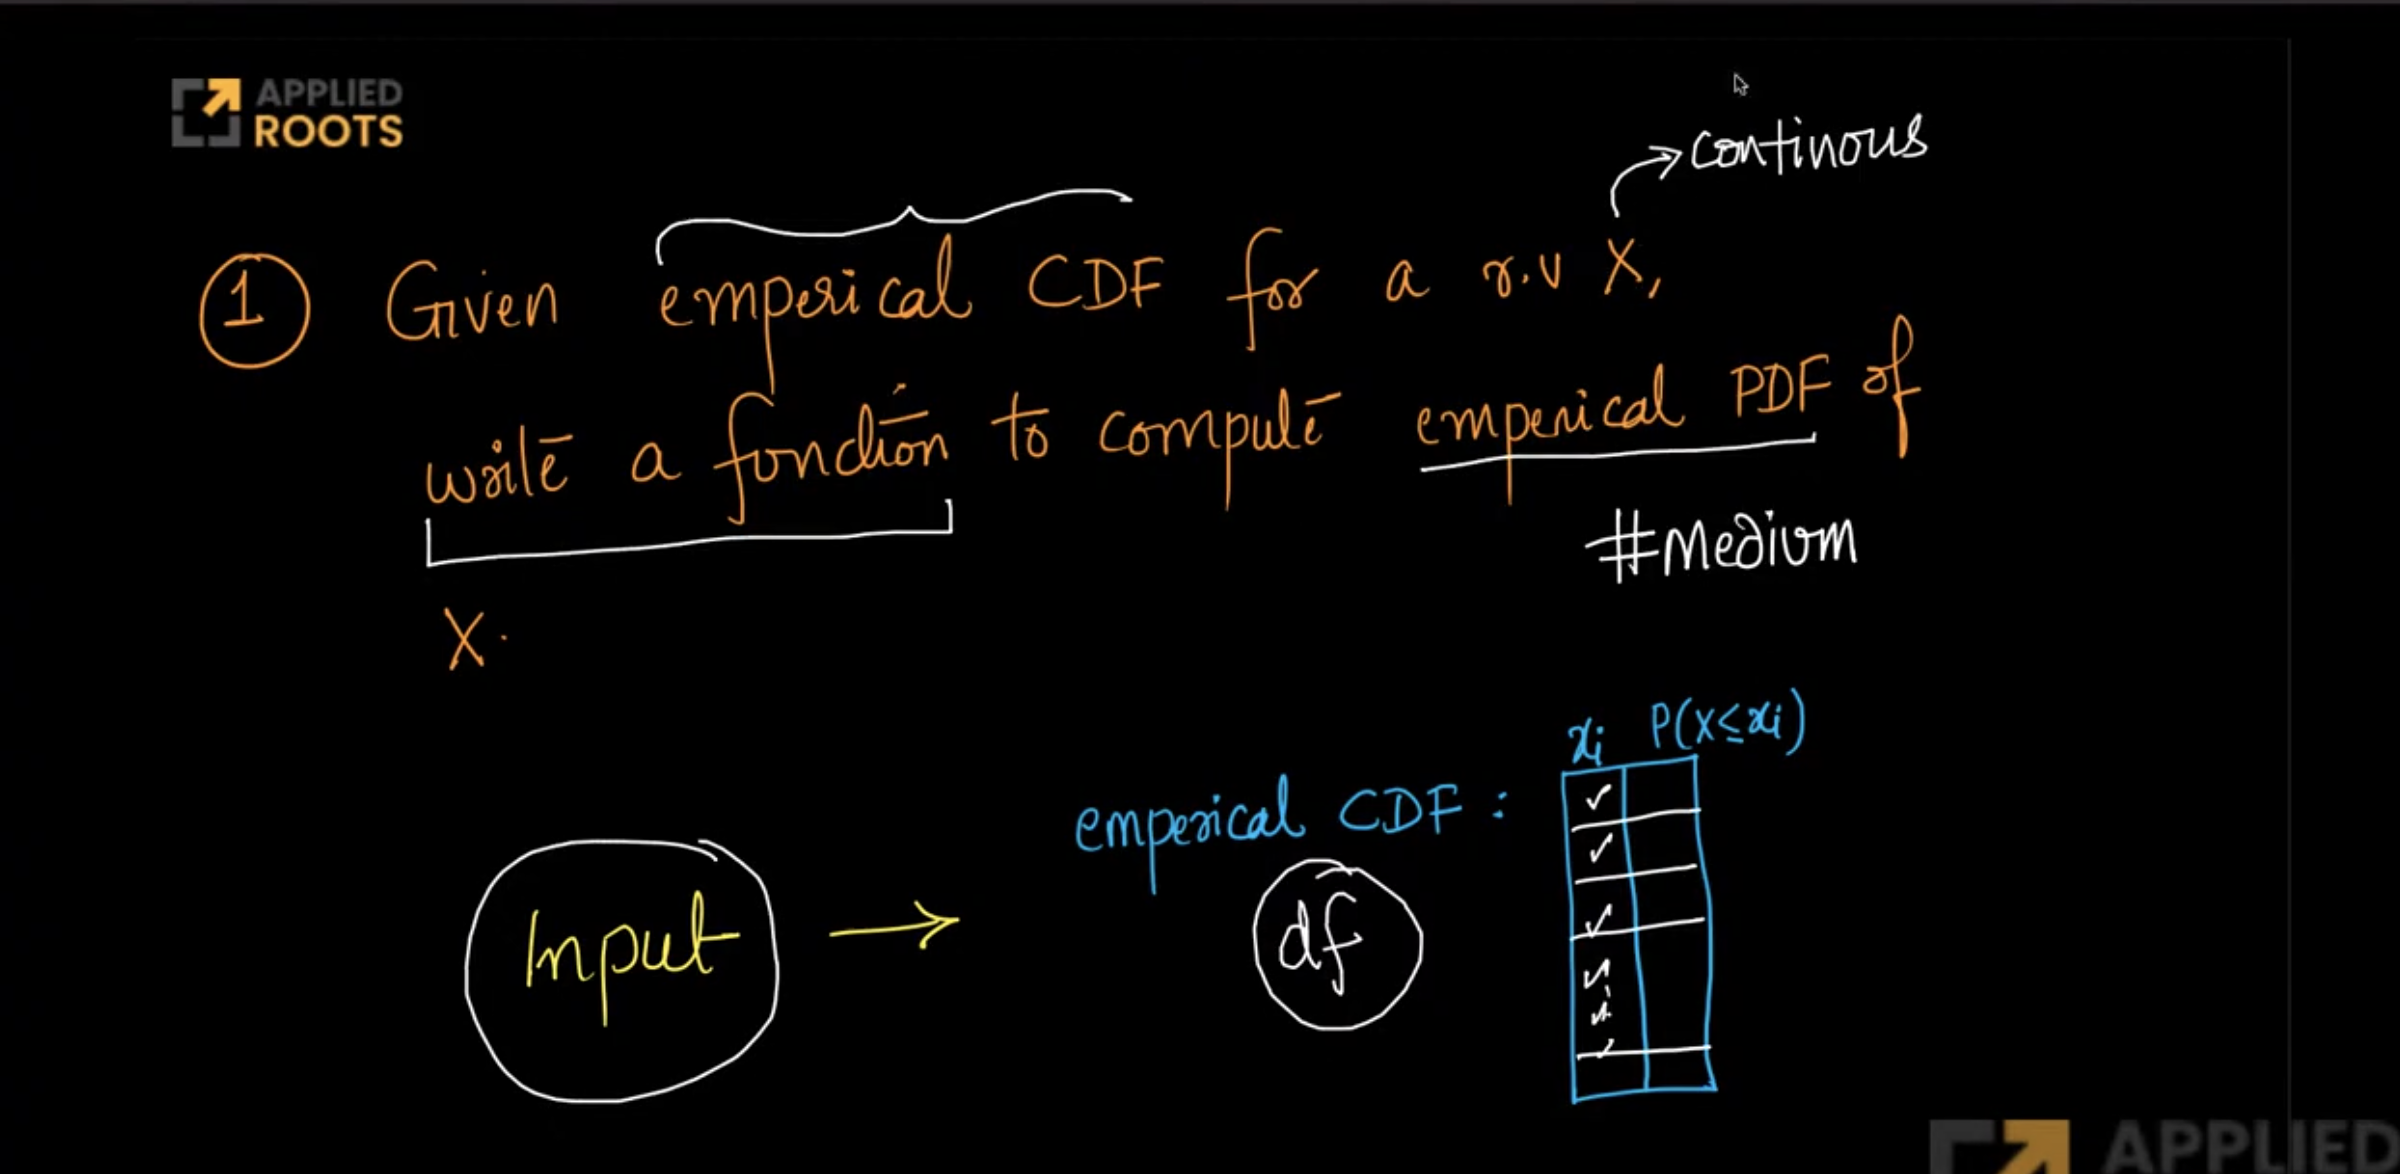 APPLIED
ROOTS
continous
1 Given emperical CDF for a r.v X,
write a function to compute emperical PDF of
#Medium
X.
xi P(X≤xi)
emperical CDF :
Input → df
APPLIED